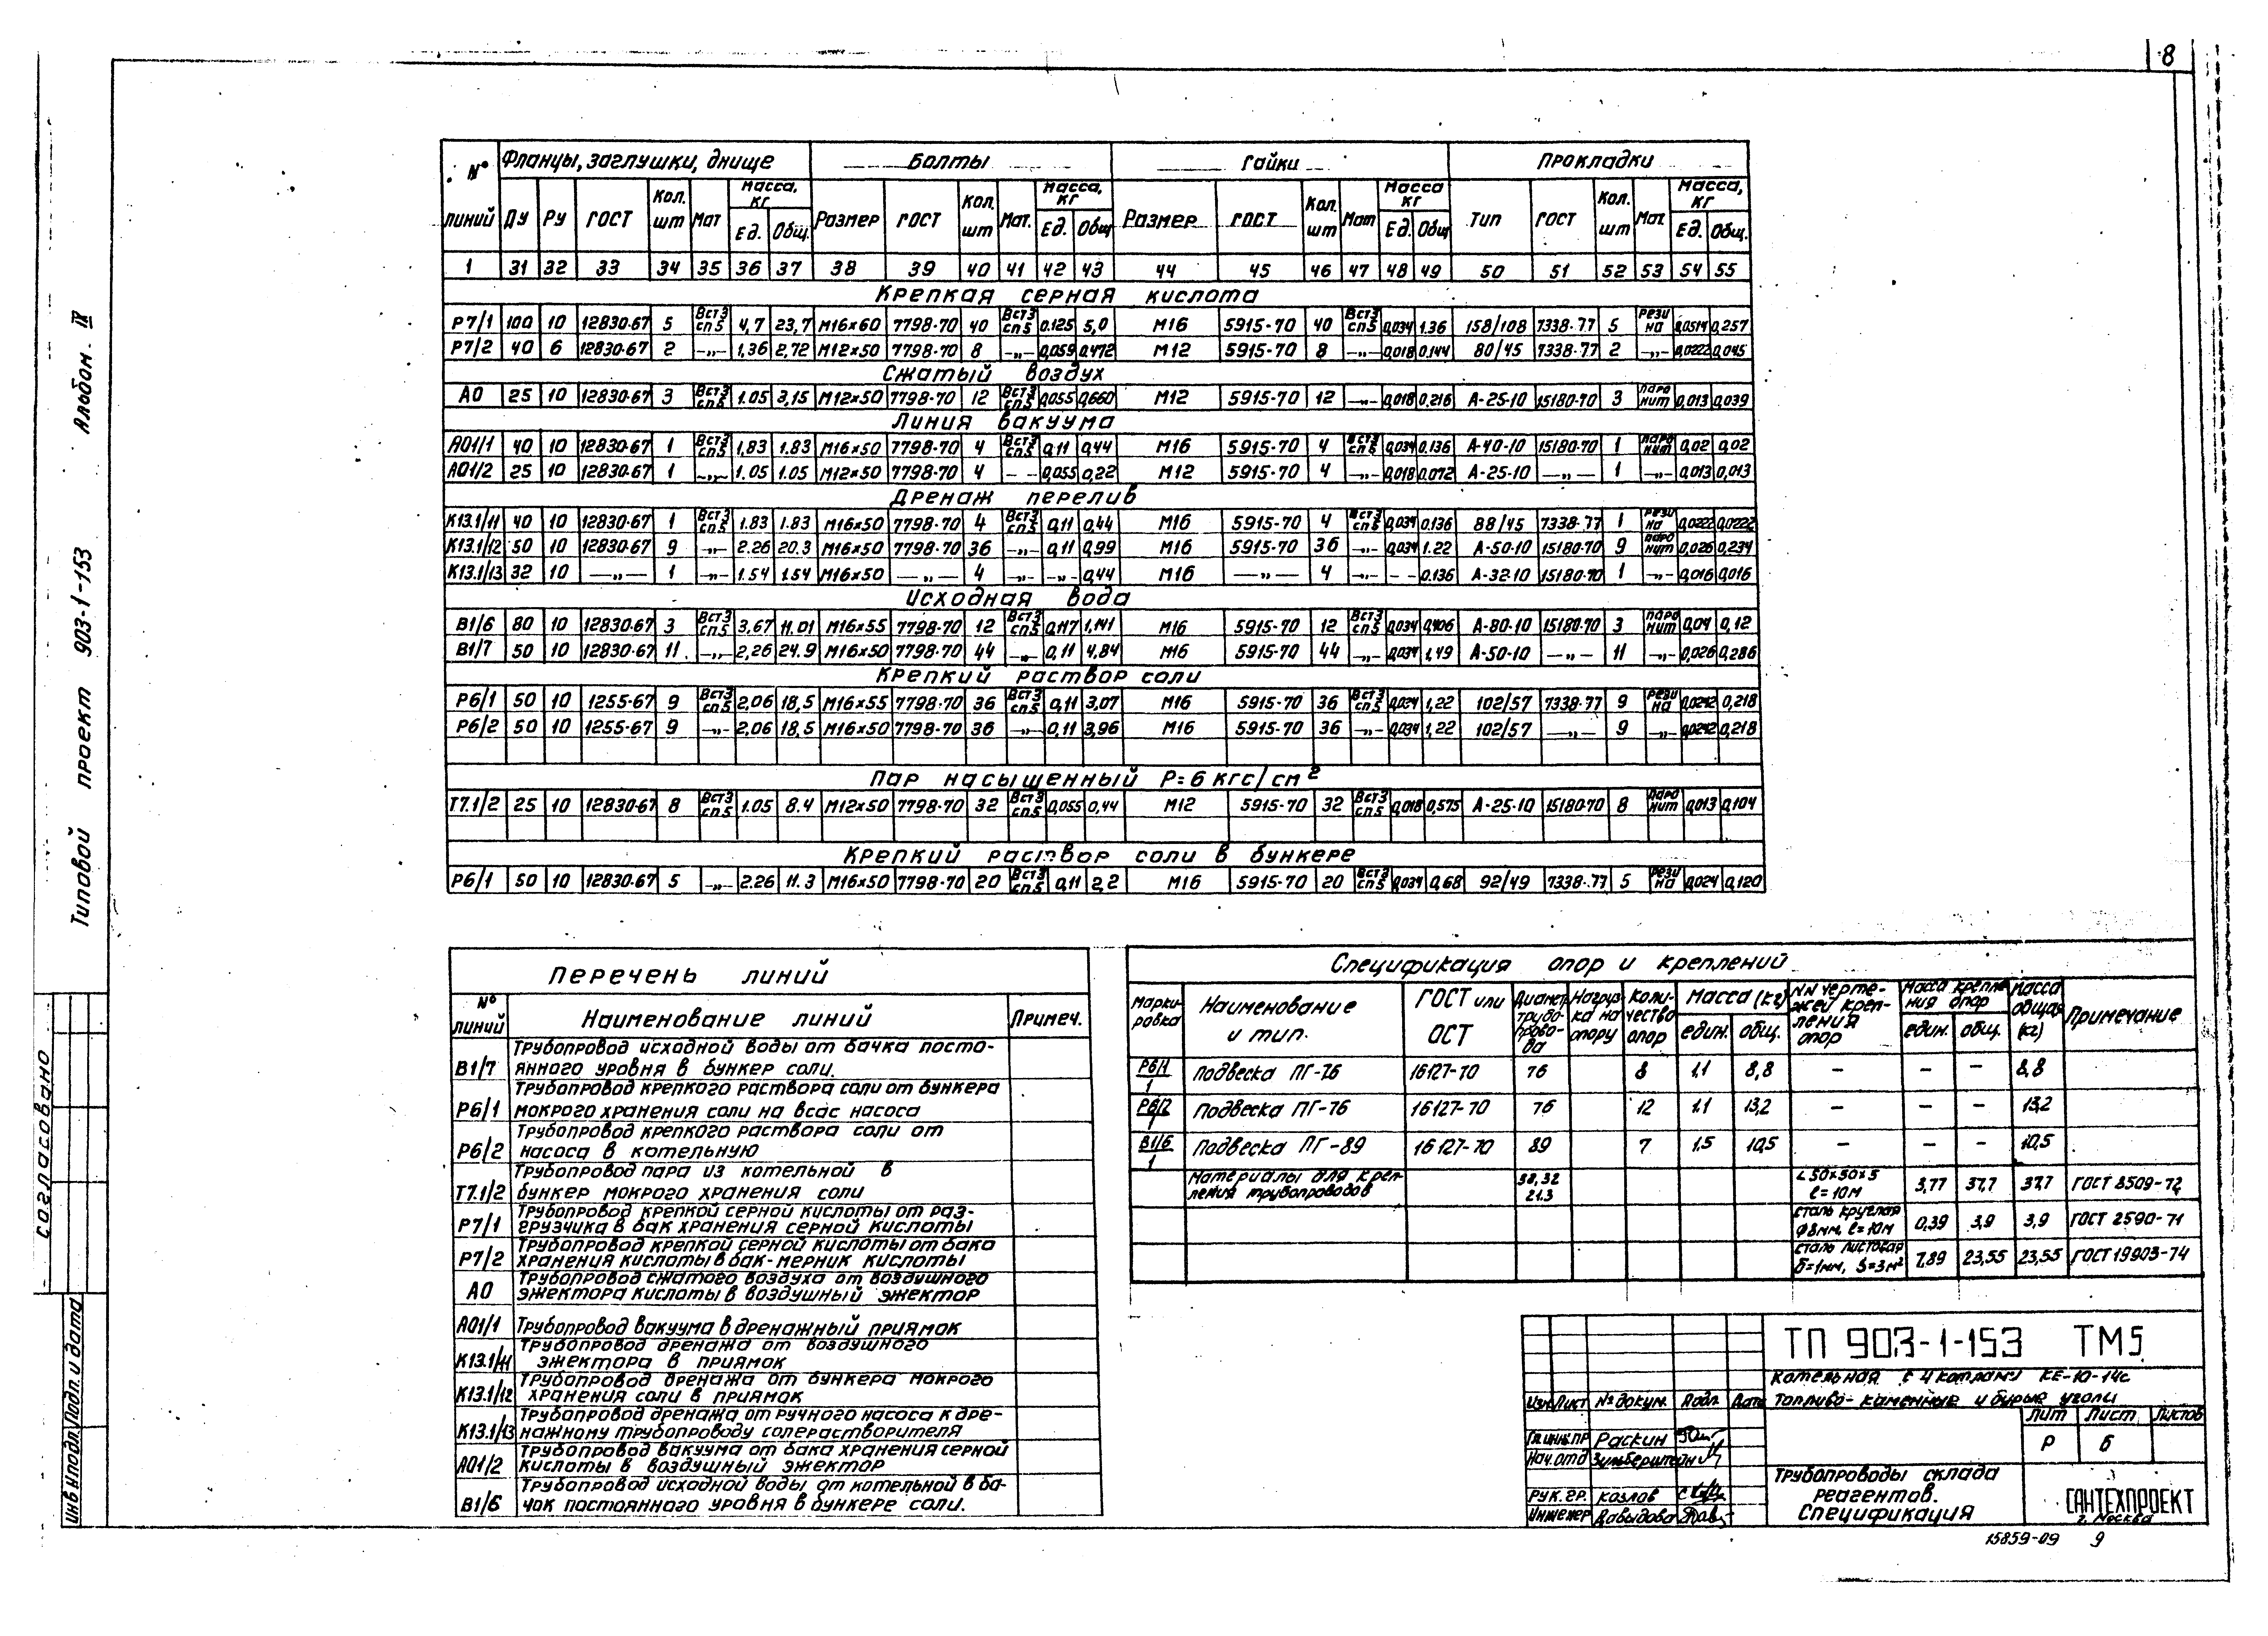 8
Типовой проект 903-1-153 Альбом. IX
Согласовано
Инв.№подл. Подп. и дата
№ линий | Фланцы, заглушки, днище | Болты | Гайки | Прокладки
ДУ | РУ | ГОСТ | Кол. шт | Мат | Масса, кг Ед. Общ. | Размер | ГОСТ | Кол. шт | Мат. | Масса, кг Ед. Общ | Размер | ГОСТ | Кол. шт | Мат | Масса кг Ед. Общ | Тип | ГОСТ | Кол. шт | Мат. | Масса, кг Ед. Общ.
1 | 31 | 32 | 33 | 34 | 35 | 36 | 37 | 38 | 39 | 40 | 41 | 42 | 43 | 44 | 45 | 46 | 47 | 48 | 49 | 50 | 51 | 52 | 53 | 54 | 55
Крепкая серная кислота
Р7/1 | 100 | 10 | 12830-67 | 5 | Вст3 сп5 | 4,7 | 23,7 | М16×60 | 7798-70 | 40 | Вст3 сп5 | 0.125 | 5,0 | М16 | 5915-70 | 40 | Вст3 сп5 | 0,034 | 1.36 | 158/108 | 7338-77 | 5 | Рези на | 0,0514 | 0,257
Р7/2 | 40 | 6 | 12830-67 | 2 | —„— | 1,36 | 2,72 | М12×50 | 7798-70 | 8 | —„— | 0,059 | 0.472 | М12 | 5915-70 | 8 | —„— | 0,018 | 0.144 | 80/45 | 7338-77 | 2 | —„— | 0,0222 | 0,045
Сжатый воздух
А0 | 25 | 10 | 12830-67 | 3 | Вст3 сп5 | 1.05 | 3,15 | М12×50 | 7798-70 | 12 | Вст3 сп5 | 0,055 | 0,660 | М12 | 5915-70 | 12 | —„— | 0,018 | 0.216 | А-25-10 | 15180-70 | 3 | паро нит | 0,013 | 0,039
Линия вакуума
А01/1 | 40 | 10 | 12830-67 | 1 | Вст3 сп5 | 1,83 | 1.83 | М16×50 | 7798-70 | 4 | Вст3 сп5 | 0,11 | 0,44 | М16 | 5915-70 | 4 | Вст3 сп5 | 0,034 | 0.136 | А-40-10 | 15180-70 | 1 | паро нит | 0,02 | 0,02
А01/2 | 25 | 10 | 12830-67 | 1 | —„— | 1.05 | 1.05 | М12×50 | 7798-70 | 4 | — — | 0,055 | 0,22 | М12 | 5915-70 | 4 | —„— | 0,018 | 0.072 | А-25-10 | —„— | 1 | —„— | 0,013 | 0,013
Дренаж перелив
К13.1/11 | 40 | 10 | 12830-67 | 1 | Вст3 сп5 | 1.83 | 1.83 | М16×50 | 7798-70 | 4 | Вст3 сп5 | 0,11 | 0,44 | М16 | 5915-70 | 4 | Вст3 сп5 | 0,034 | 0.136 | 88/45 | 7338-77 | 1 | Рези на | 0,0222 | 0,0222
К13.1/12 | 50 | 10 | 12830-67 | 9 | —„— | 2.26 | 20.3 | М16×50 | 7798-70 | 36 | —„— | 0,11 | 0,99 | М16 | 5915-70 | 36 | —„— | 0,034 | 1.22 | А-50-10 | 15180-70 | 9 | паро нит | 0,026 | 0,234
К13.1/13 | 32 | 10 | —„— | 1 | —„— | 1.54 | 1.54 | М16×50 | —„— | 4 | —„— | —„— | 0,44 | М16 | —„— | 4 | —„— | — — | 0.136 | А-32-10 | 15180-70 | 1 | —„— | 0,016 | 0,016
Исходная вода
В1/6 | 80 | 10 | 12830-67 | 3 | Вст3 сп5 | 3,67 | 11.01 | М16×55 | 7798-70 | 12 | Вст3 сп5 | 0,117 | 1,141 | М16 | 5915-70 | 12 | Вст3 сп5 | 0,034 | 0,406 | А-80-10 | 15180-70 | 3 | паро нит | 0,04 | 0,12
В1/7 | 50 | 10 | 12830-67 | 11. | —„— | 2,26 | 24.9 | М16×50 | 7798-70 | 44 | —„— | 0,11 | 4,84 | М16 | 5915-70 | 44 | —„— | 0,034 | 1,49 | А-50-10 | —„— | 11 | —„— | 0,026 | 0,286
Крепкий раствор соли
Р6/1 | 50 | 10 | 1255-67 | 9 | Вст3 сп5 | 2,06 | 18,5 | М16×55 | 7798-70 | 36 | Вст3 сп5 | 0,11 | 3,07 | М16 | 5915-70 | 36 | Вст3 сп5 | 0,034 | 1,22 | 102/57 | 7338-77 | 9 | Рези на | 0,0242 | 0,218
Р6/2 | 50 | 10 | 1255-67 | 9 | —„— | 2,06 | 18,5 | М16×50 | 7798-70 | 36 | —„— | 0,11 | 3,96 | М16 | 5915-70 | 36 | —„— | 0,034 | 1,22 | 102/57 | —„— | 9 | —„— | 0,0242 | 0,218
Пар насыщенный Р=6 кгс/см²
Т7.1/2 | 25 | 10 | 12830-67 | 8 | Вст3 сп5 | 1.05 | 8.4 | М12×50 | 7798-70 | 32 | Вст3 сп5 | 0,055 | 0,44 | М12 | 5915-70 | 32 | Вст3 сп5 | 0,018 | 0,575 | А-25-10 | 15180-70 | 8 | паро нит | 0,013 | 0,104
Крепкий раствор соли в бункере
Р6/1 | 50 | 10 | 12830-67 | 5 | —„— | 2.26 | 11.3 | М16×50 | 7798-70 | 20 | Вст3 сп5 | 0,11 | 2,2 | М16 | 5915-70 | 20 | Вст3 сп5 | 0,034 | 0,68 | 92/49 | 7338-77 | 5 | Рези на | 0,024 | 0,120
Перечень линий
№ линий | Наименование линий | Примеч.
В1/7 | Трубопровод исходной воды от бачка посто-
янного уровня в бункер соли.
Р6/1 | Трубопровод крепкого раствора соли от бункера
мокрого хранения соли на всас насоса
Р6/2 | Трубопровод крепкого раствора соли от
насоса в котельную
Т7.1/2 | Трубопровод пара из котельной в
бункер мокрого хранения соли
Р7/1 | Трубопровод крепкой серной кислоты от раз-
грузчика в бак хранения серной кислоты
Р7/2 | Трубопровод крепкой серной кислоты от бака
хранения кислоты в бак-мерник кислоты
А0 | Трубопровод сжатого воздуха от воздушного
эжектора кислоты в воздушный эжектор
А01/1 | Трубопровод вакуума в дренажный приямок
К13.1/11 | Трубопровод дренажа от воздушного
эжектора в приямок
К13.1/12 | Трубопровод дренажа от бункера мокрого
хранения соли в приямок
К13.1/13 | Трубопровод дренажа от ручного насоса к дре-
нажному трубопроводу солерастворителя
А01/2 | Трубопровод вакуума от бака хранения серной
кислоты в воздушный эжектор
В1/6 | Трубопровод исходной воды от котельной в ба-
чок постоянного уровня в бункере соли.
Спецификация опор и креплений
Марки-ровка | Наименование и тип. | ГОСТ или ОСТ | Диаметр трубо-прово-да | Нагруз-ка на опору | Коли-чество опор | Масса (кг) един. общ. | NN черте-жей креп-ления опор | Масса крепле-ния опор един. общ. | Масса общая (кг) | Примечание
Р6/1 1 | Подвеска ПГ-76 | 16127-70 | 76 | 8 | 1.1 | 8,8 | — | — | — | 8,8
Р6/2 1 | Подвеска ПГ-76 | 16127-70 | 76 | 12 | 1.1 | 13,2 | — | — | — | 13,2
В1/6 1 | Подвеска ПГ-89 | 16127-70 | 89 | 7 | 1.5 | 10,5 | — | — | — | 10,5
Материалы для креп-ления трубопроводов | 38, 32 21.3 | ∠50×50×5 ℓ=10м | 3,77 | 37,7 | 37,7 | ГОСТ 8509-72
сталь круглая ϕ8мм, ℓ=10м | 0,39 | 3,9 | 3,9 | ГОСТ 2590-71
сталь листовая δ=1мм, S=3м² | 7,89 | 23,55 | 23,55 | ГОСТ 19903-74
ТП 903-1-153 ТМ5
Котельная с 4 котлами КЕ-10-14с
Топливо-каменные и бурые угли
Изм Лист № докум. Подп. Дата
Лит Лист Листов
Р 6
Гл.инж.пр Раскин
Нач.отд Зильберштейн
Рук.гр. Козлов
Инженер Давыдова
Трубопроводы склада
реагентов.
Спецификация
САНТЕХПРОЕКТ
г. Москва
15859-09 9